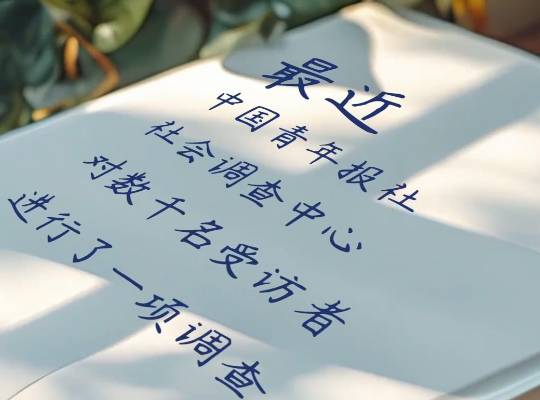 最近
中国青年报社
社会调查中心
对数千名受访者
进行了一项调查